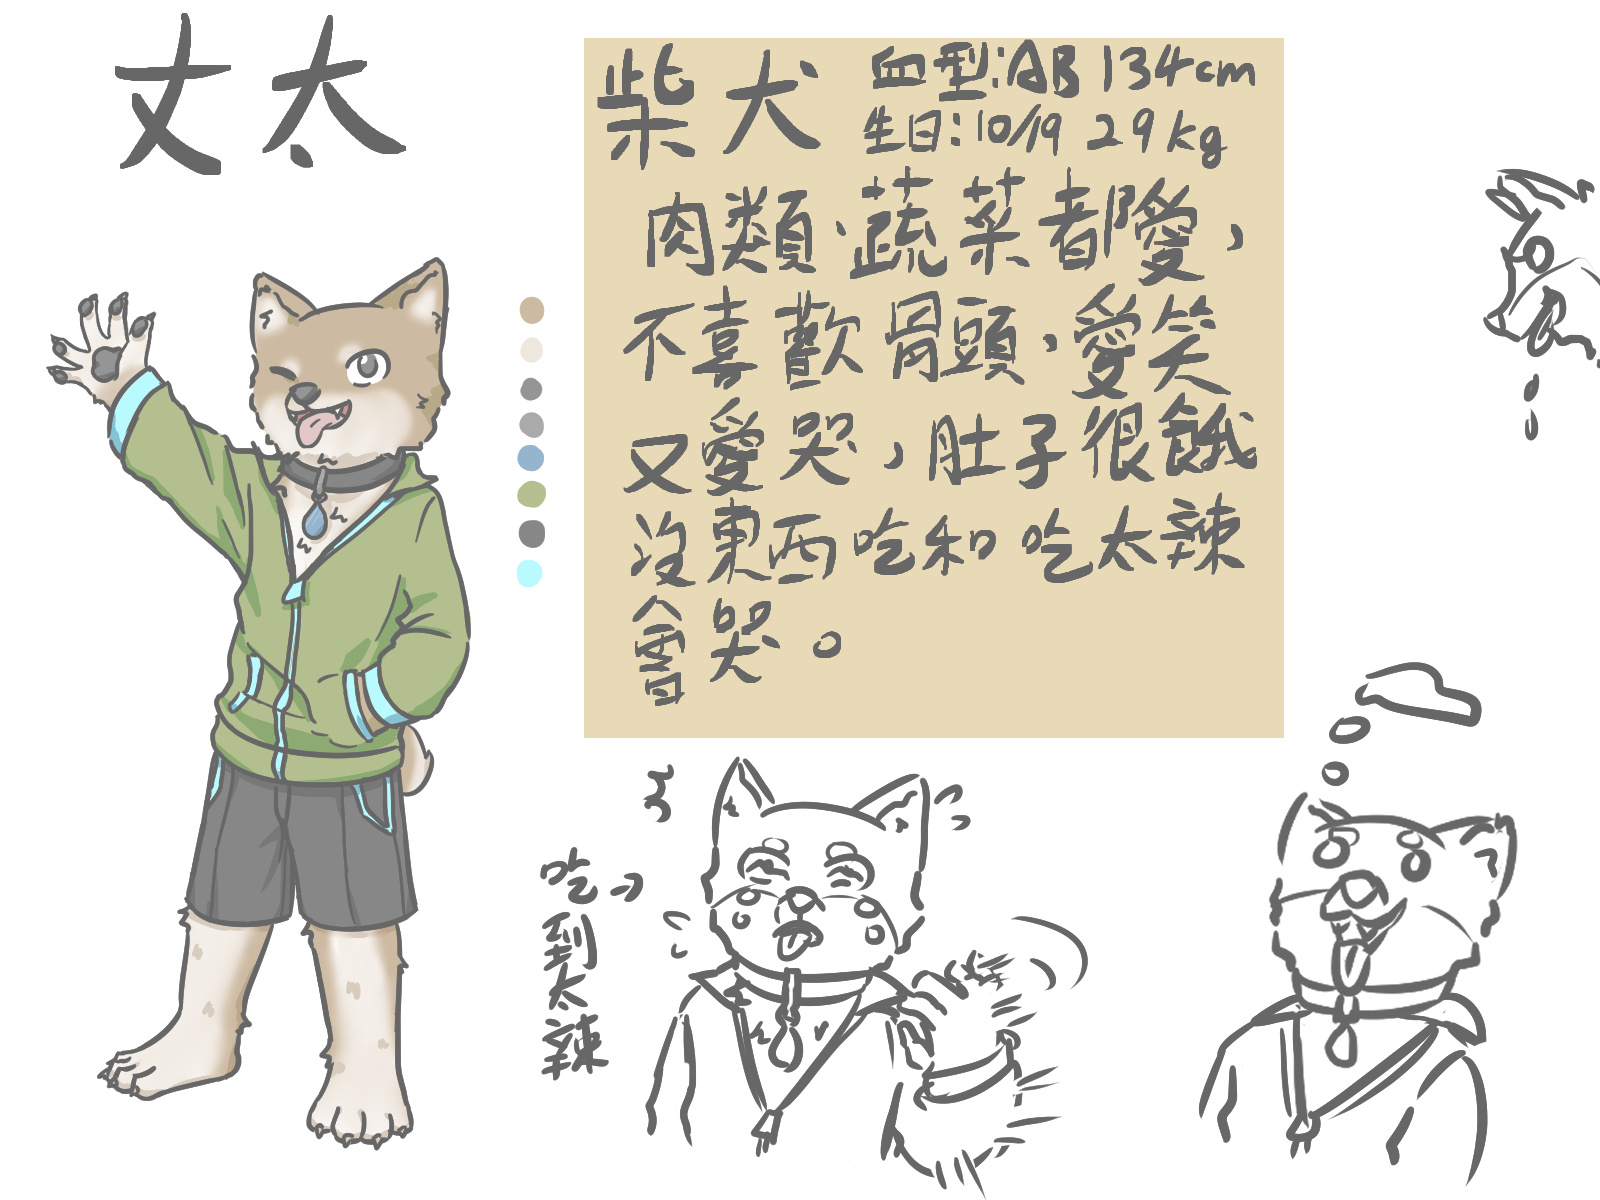 丈太
柴犬
血型:AB 134cm
生日:10/19 29kg
肉類、蔬菜都愛，
不喜歡骨頭，愛笑
又愛哭，肚子很餓
沒東西吃和吃太辣
會哭。
吃到太辣